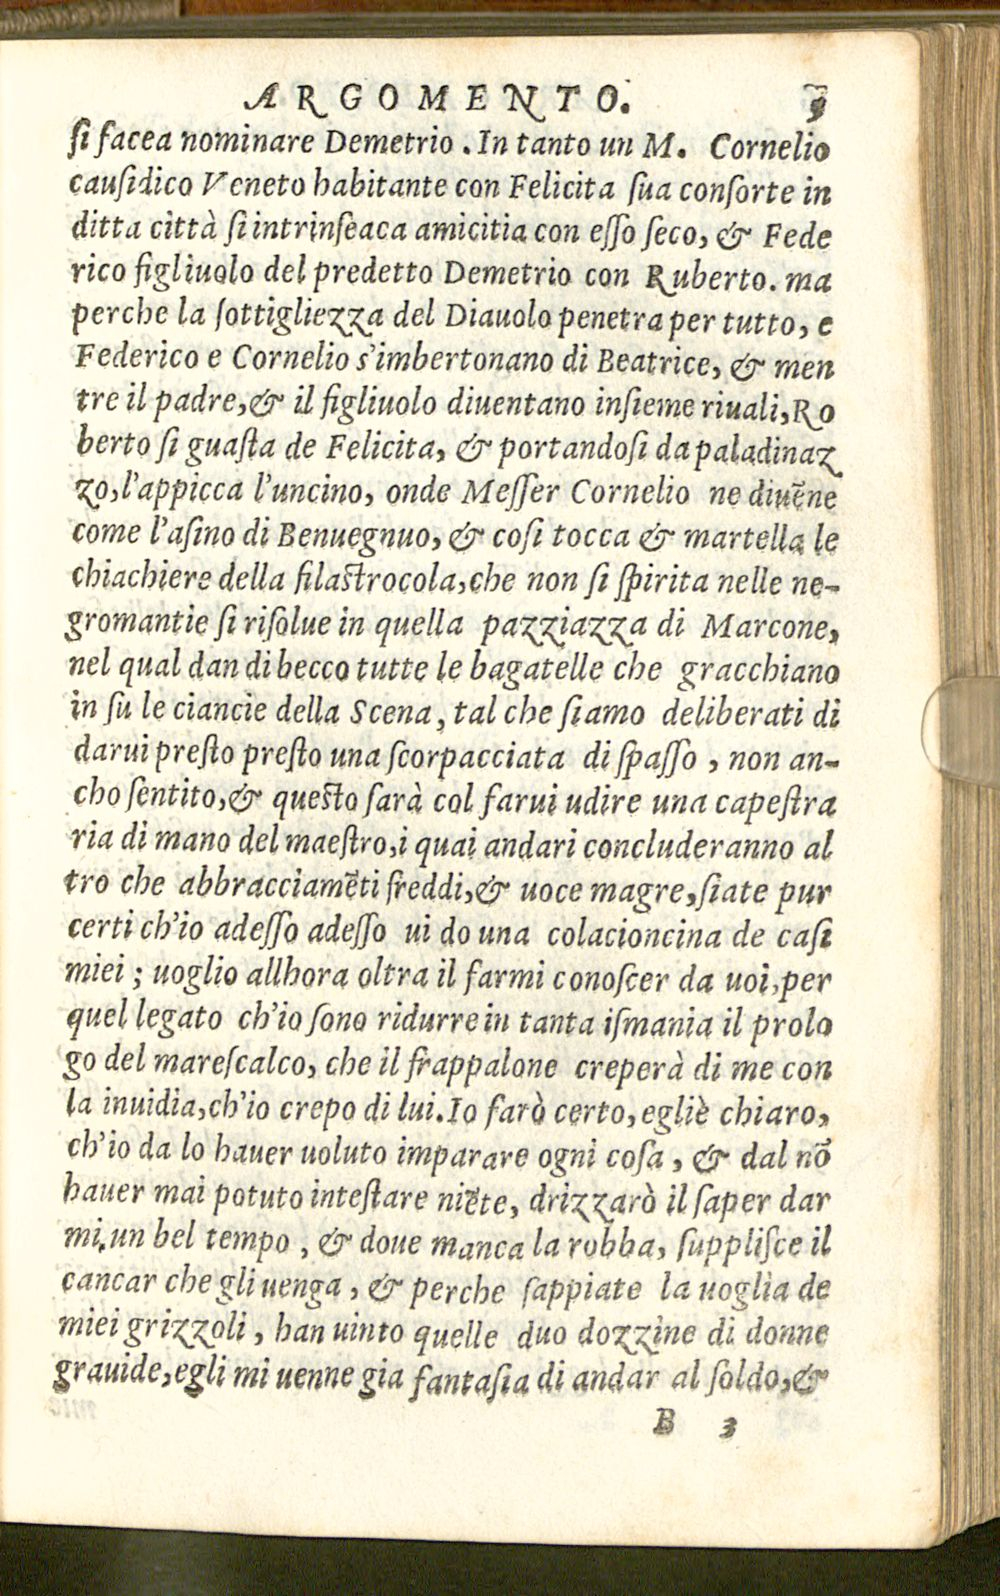 ARGOMENTO.
si facea nominare Demetrio. In tanto un M. Cornelio
causidico Veneto habitante con Felicita sua consorte in
ditta città si intrinseaca amicitia con esso seco, & Fede
rico figliuolo del predetto Demetrio con Ruberto. ma
perche la sottigliezza del Diauolo penetra per tutto, e
Federico e Cornelio s'imbertonano di Beatrice, & men
tre il padre, & il figliuolo diuentano insieme riuali, Ro
berto si guasta de Felicita, & portandosi da paladinaz
zo, l'appicca l'uncino, onde Messer Cornelio ne diuẽne
come l'asino di Benuegnuo, & cosi tocca & martella le
chiachiere della filastrocola, che non si spirita nelle ne-
gromantie si risolue in quella pazziazza di Marcone,
nel qual dan di becco tutte le bagatelle che gracchiano
in su le ciancie della Scena, tal che siamo deliberati di
darui presto presto una scorpacciata di spasso, non an-
cho sentito, & questo sarà col farui udire una capestra
ria di mano del maestro, i quai andari concluderanno al
tro che abbracciamẽti freddi, & uoce magre, siate pur
certi ch'io adesso adesso ui do una colacioncina de casi
miei; uoglio allhora oltra il farmi conoscer da uoi, per
quel legato ch'io sono ridurre in tanta ismania il prolo
go del marescalco, che il frappalone creperà di me con
la inuidia, ch'io crepo di lui. Io farò certo, egliè chiaro,
ch'io da lo hauer uoluto imparare ogni cosa, & dal nõ
hauer mai potuto intestare niẽte, drizzarò il saper dar
mi un bel tempo, & doue manca la robba, supplisce il
cancar che gli uenga, & perche sappiate la uoglia de
miei grizzoli, han uinto quelle duo dozzine di donne
grauide, egli mi uenne gia fantasia di andar al soldo, &
B 3